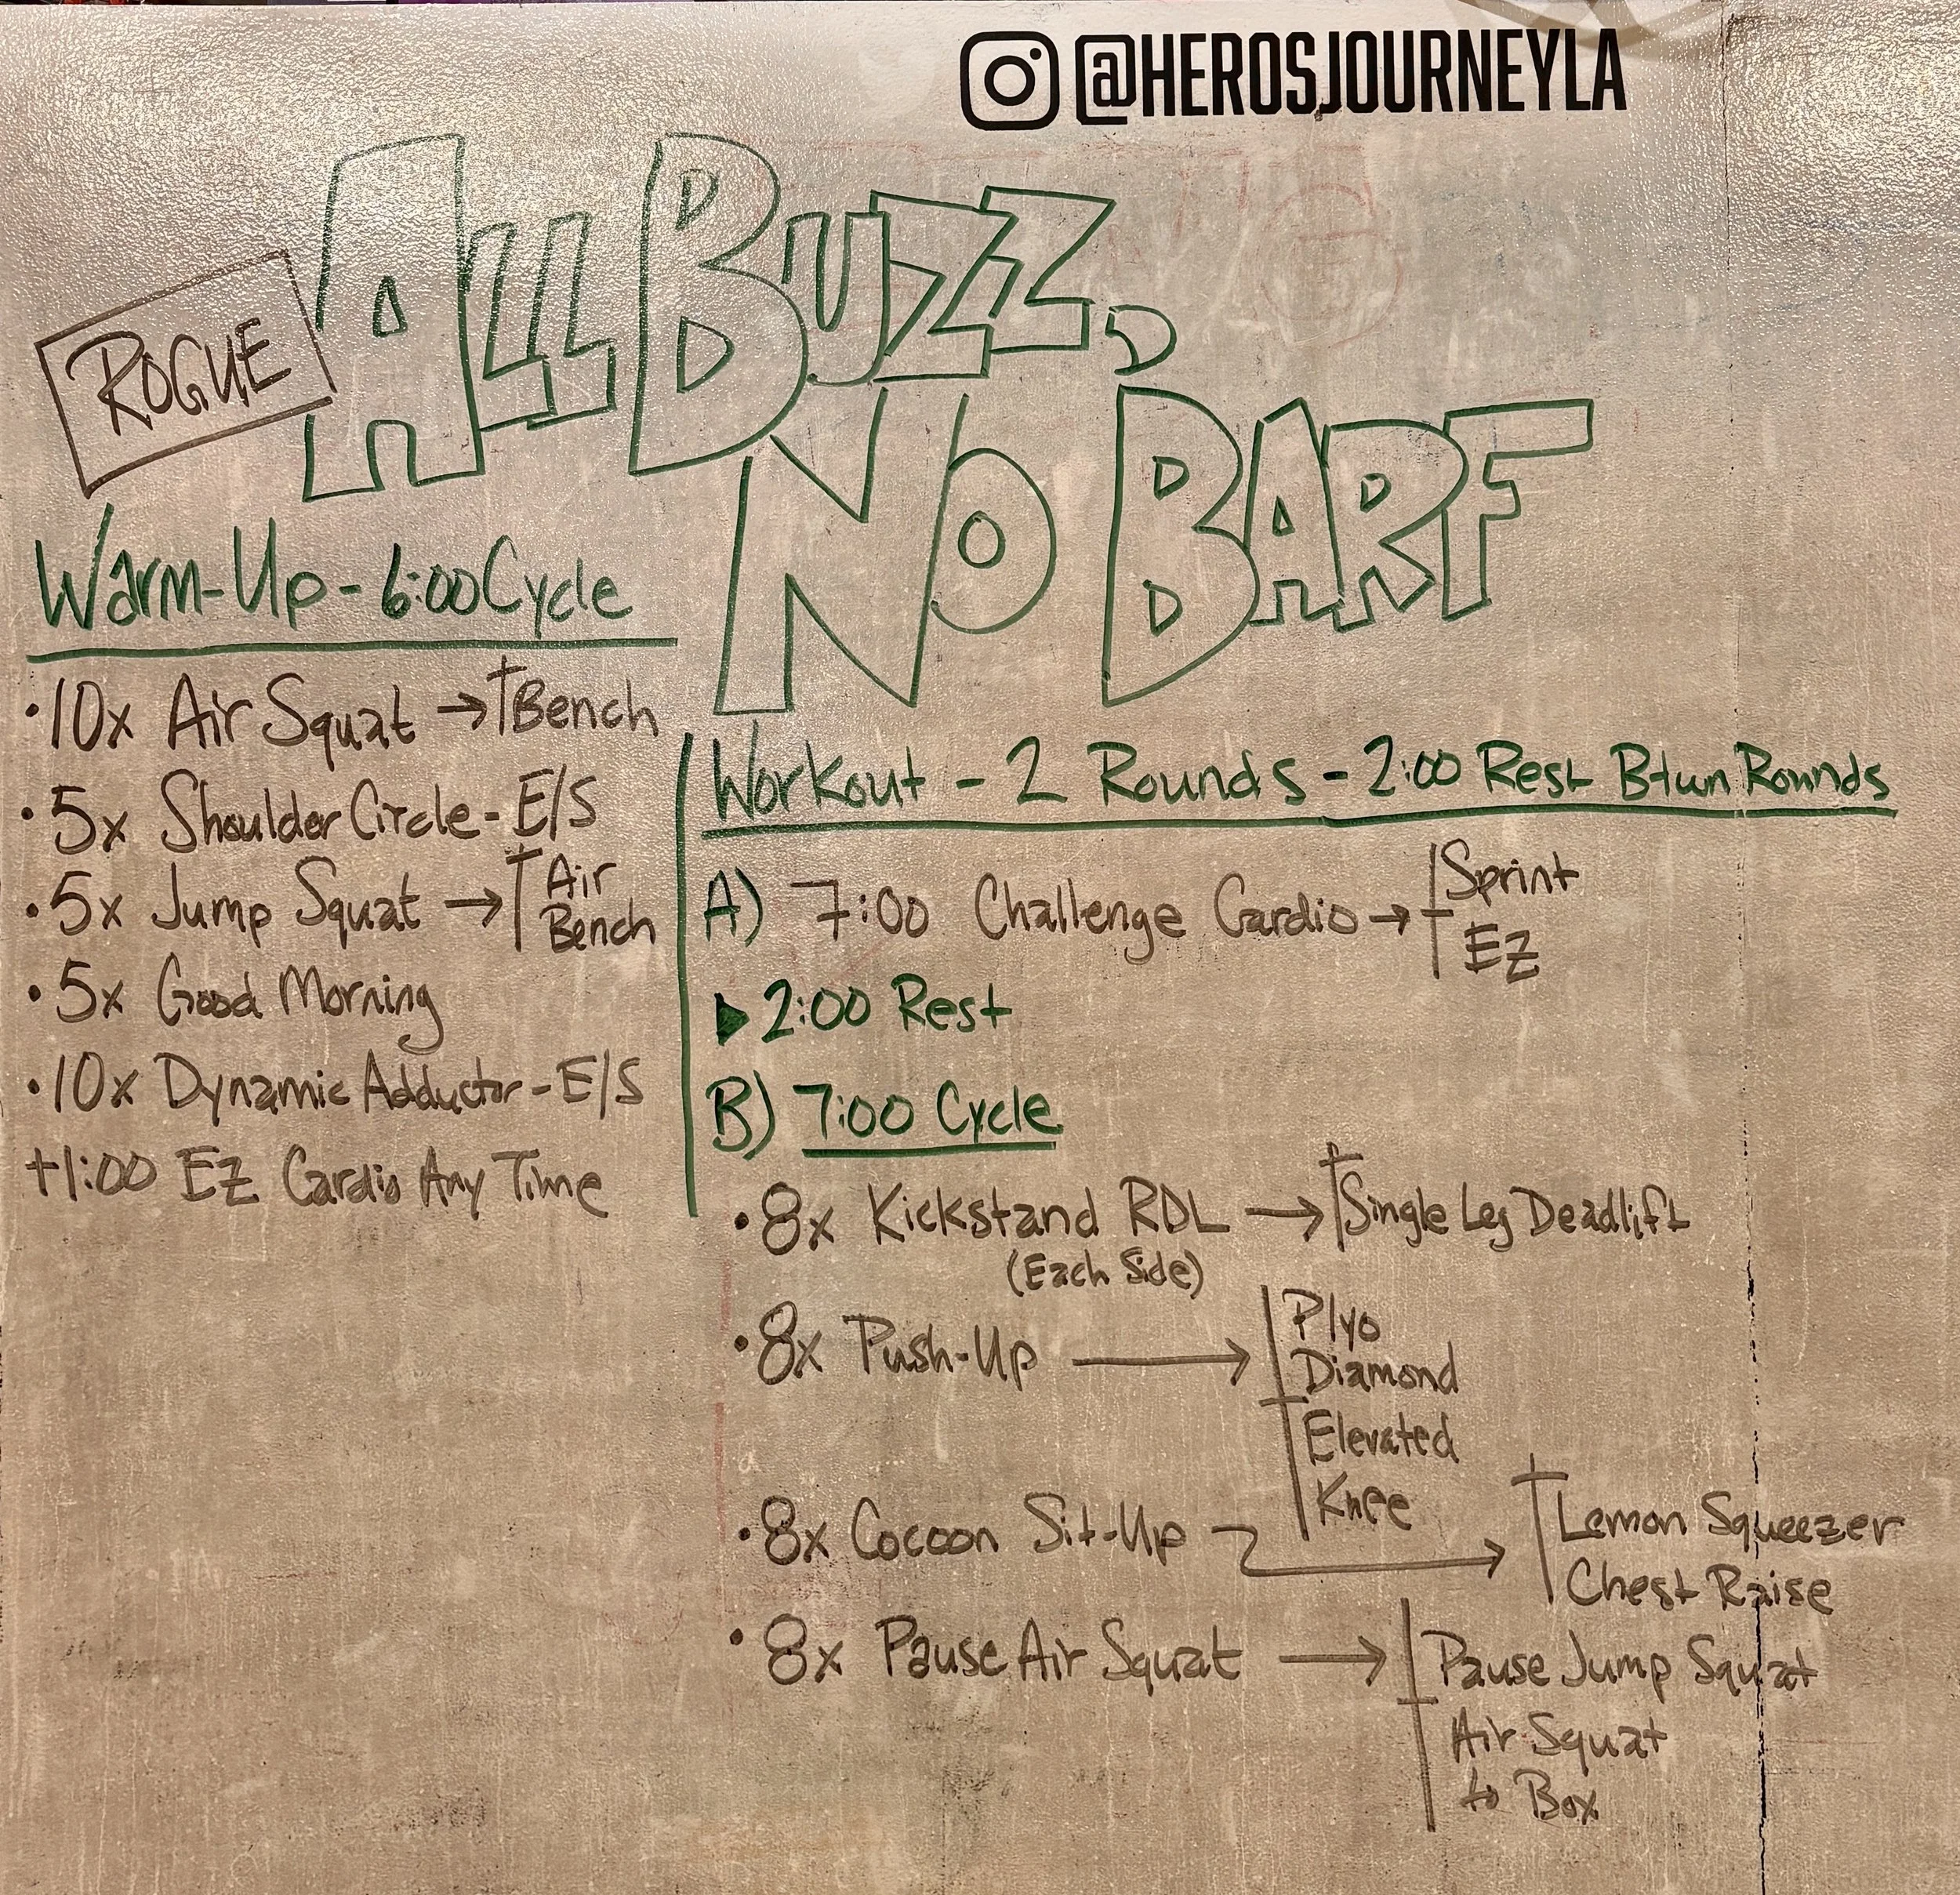 @HEROSJOURNEYLA
ROGUE
ALL BUZZ,
NO BARF
Warm-Up - 6:00 Cycle
• 10x Air Squat → Bench
• 5x Shoulder Circle - E/S
• 5x Jump Squat → Air
Bench
• 5x Good Morning
• 10x Dynamic Adductor - E/S
+1:00 EZ Cardio Any Time
Workout - 2 Rounds - 2:00 Rest Btwn Rounds
A) 7:00 Challenge Cardio → Sprint
EZ
▶ 2:00 Rest
B) 7:00 Cycle
• 8x Kickstand RDL → Single Leg Deadlift
(Each Side)
• 8x Push-Up → Plyo
Diamond
Elevated
Knee
• 8x Cocoon Sit-Up → Lemon Squeezer
Chest Raise
• 8x Pause Air Squat → Pause Jump Squat
Air Squat
to Box